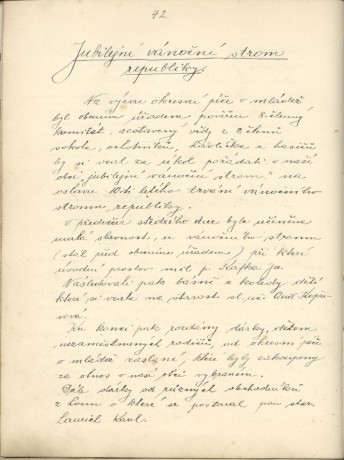 42
Jubilejní vánoční strom
republiky.
Na výzvu okresní péče o mládež
byl obecním úřadem pověřen 8 členný
komitét, sestavený vždy z 2 členů
sokola, ochotníků, Havlíčka a hasičů
by si vzal za úkol pořádati v naší
obci "jubilejní vánoční strom" na
oslavu 10ti letého trvání vánočního
stromu republiky.
V předvečer štědrého dne byla učiněna
malá slavnost, u vánočního stromu
(stál před obecním úřadem) při které
úvodní proslov měl p. Kafka Ja.
Následovali pak básně a koledy dětí
které si vzala na starost sl. uč.
Ku konci pak rozdány dárky, dětem
nezaměstnaných rodičů, od okresní péče
o mládež zaslané, které byly zakoupeny
za obnos v naší obci vybraném.
Dále dárky od různých obchodníků
z Lomu o které se postaral pan star.
Karel.